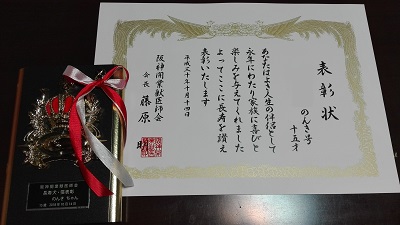 表彰状
のんき号
十五才
あなたはよき人生の伴侶として
永年にわたり家族に喜びと
楽しみを与えてくれました
よってここに長寿を讃え
表彰いたします
平成二十年十月十四日
阪神開業獣医師会
会長 藤原 明
阪神開業獣医師会
長寿犬・猫表彰
のんき ちゃん